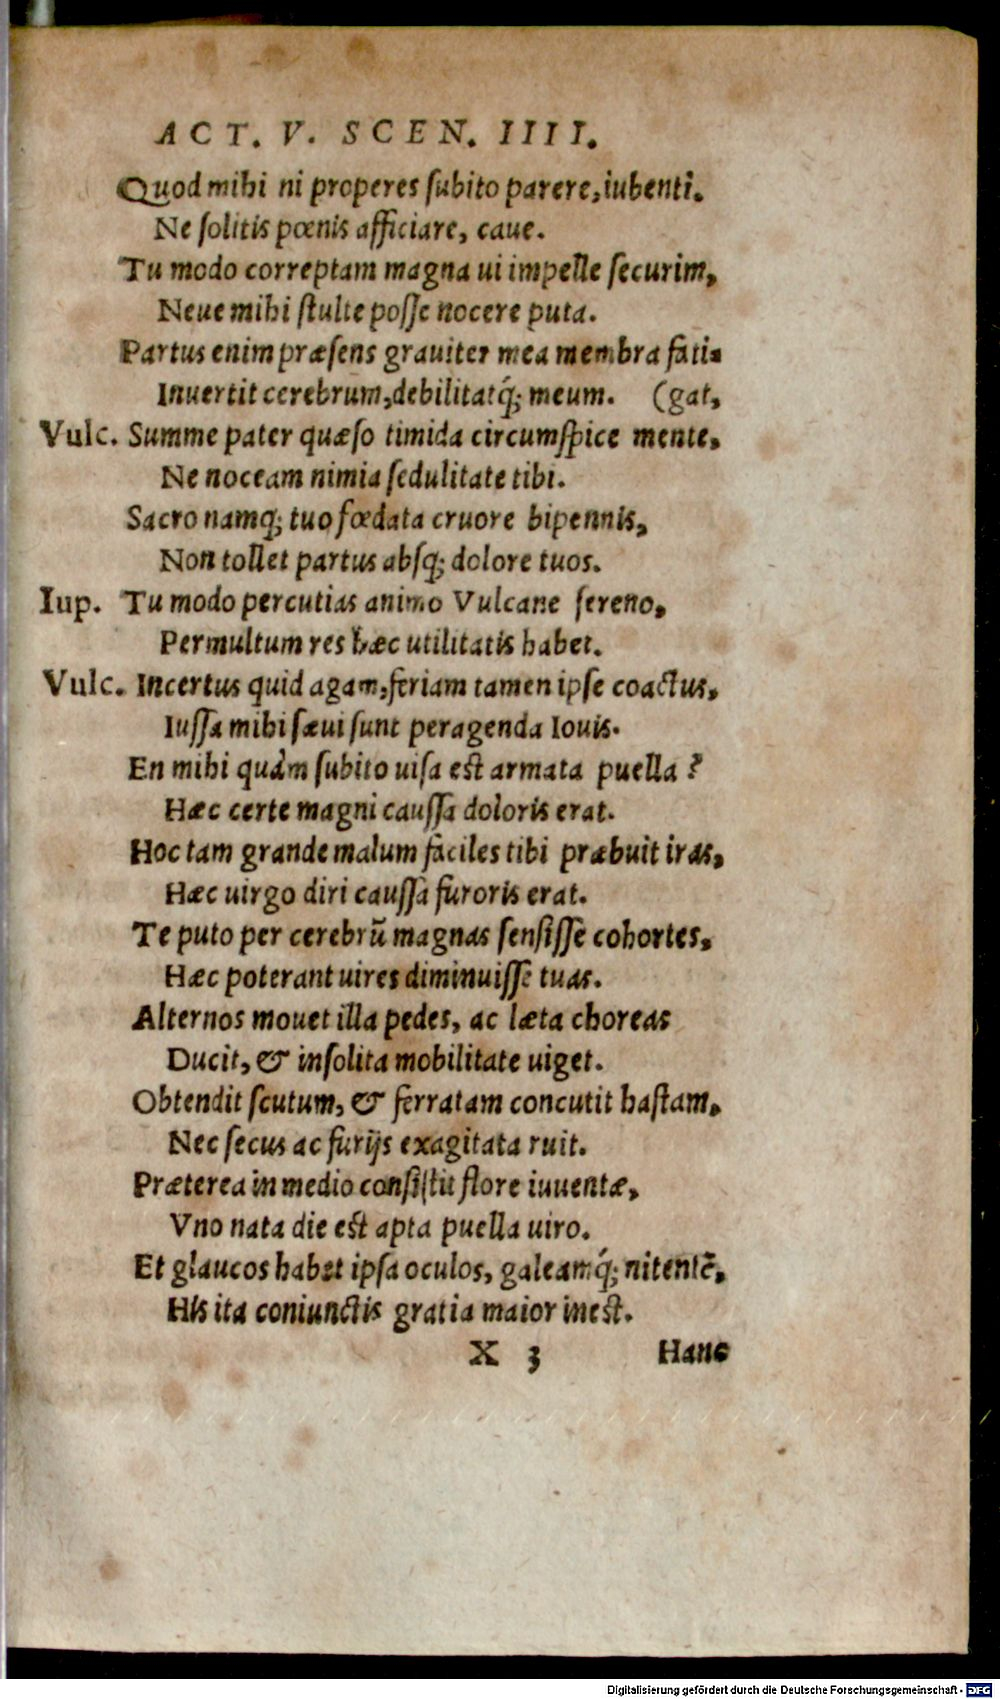 ACT. V. SCEN. IIII.
Quod mihi ni properes subito parere, iubenti.
Ne solitis pœnis afficiare, caue.
Tu modo correptam magna ui impelle securim,
Neue mihi stulte posse nocere puta.
Partus enim præsens grauiter mea membra fati-
Inuertit cerebrum, debilitatq́; meum. (gat,
Vulc. Summe pater quæso timida circumspice mente,
Ne noceam nimia sedulitate tibi.
Sacro namq; tuo fœdata cruore bipennis,
Non tollet partus absq; dolore tuos.
Iup. Tu modo percutias animo Vulcane sereno,
Permultum res hæc utilitatis habet.
Vulc. Incertus quid agam, feriam tamen ipse coactus,
Iussa mihi sæui sunt peragenda Iouis.
En mihi quàm subito uisa est armata puella?
Hæc certe magni caussa doloris erat.
Hoc tam grande malum faciles tibi præbuit iras,
Hæc uirgo diri caussa furoris erat.
Te puto per cerebrũ magnas sensisse cohortes,
Hæc poterant uires diminuisse tuas.
Alternos mouet illa pedes, ac læta choreas
Ducit, & insolita mobilitate uiget.
Obtendit scutum, & ferratam concutit hastam,
Nec secus ac furijs exagitata ruit.
Præterea in medio consistit flore iuuentæ,
Vno nata die est apta puella uiro.
Et glaucos habet ipsa oculos, galeamq́; nitentẽ,
His ita coniunctis gratia maior inest.
X 3 Hanc
Digitalisierung gefördert durch die Deutsche Forschungsgemeinschaft - DFG